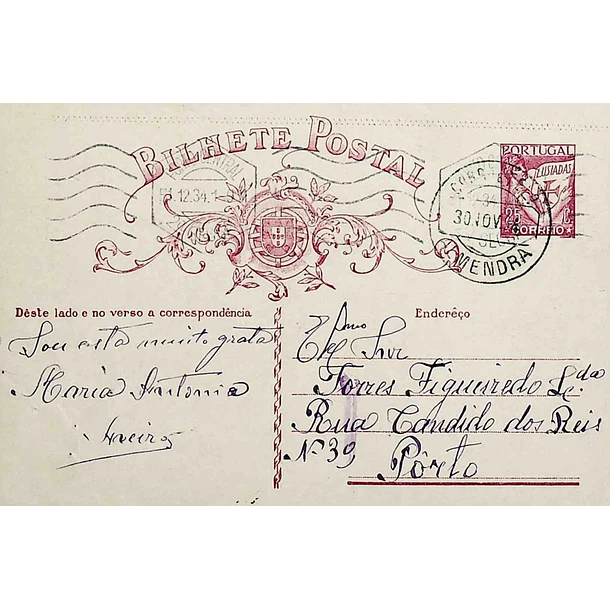 BILHETE POSTAL
PORTUGAL
LUSIADAS
25 C.
CORREIO
1.12.34.1
30 NOV
MENDRA
Dêste lado e no verso a correspondência
Enderêço
Sou esta muito grata
Maria Antonia
Aveiro
Exmo Snr
Torres Figueiredo Lcda
Rua Candido dos Reis
Nº 39
Pôrto